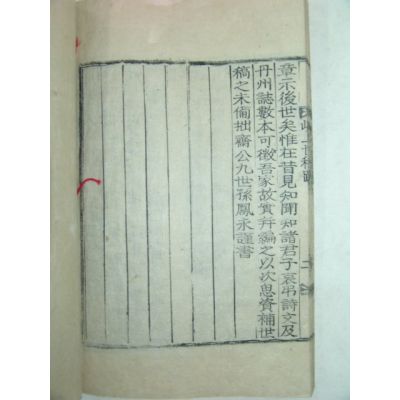 章示後世矣惟在昔見知聞知諸君子哀弔詩文及
丹州誌數本可徵吾家故實幷編之以次思資補世
稿之未備拙齋公九世孫鳳永謹書